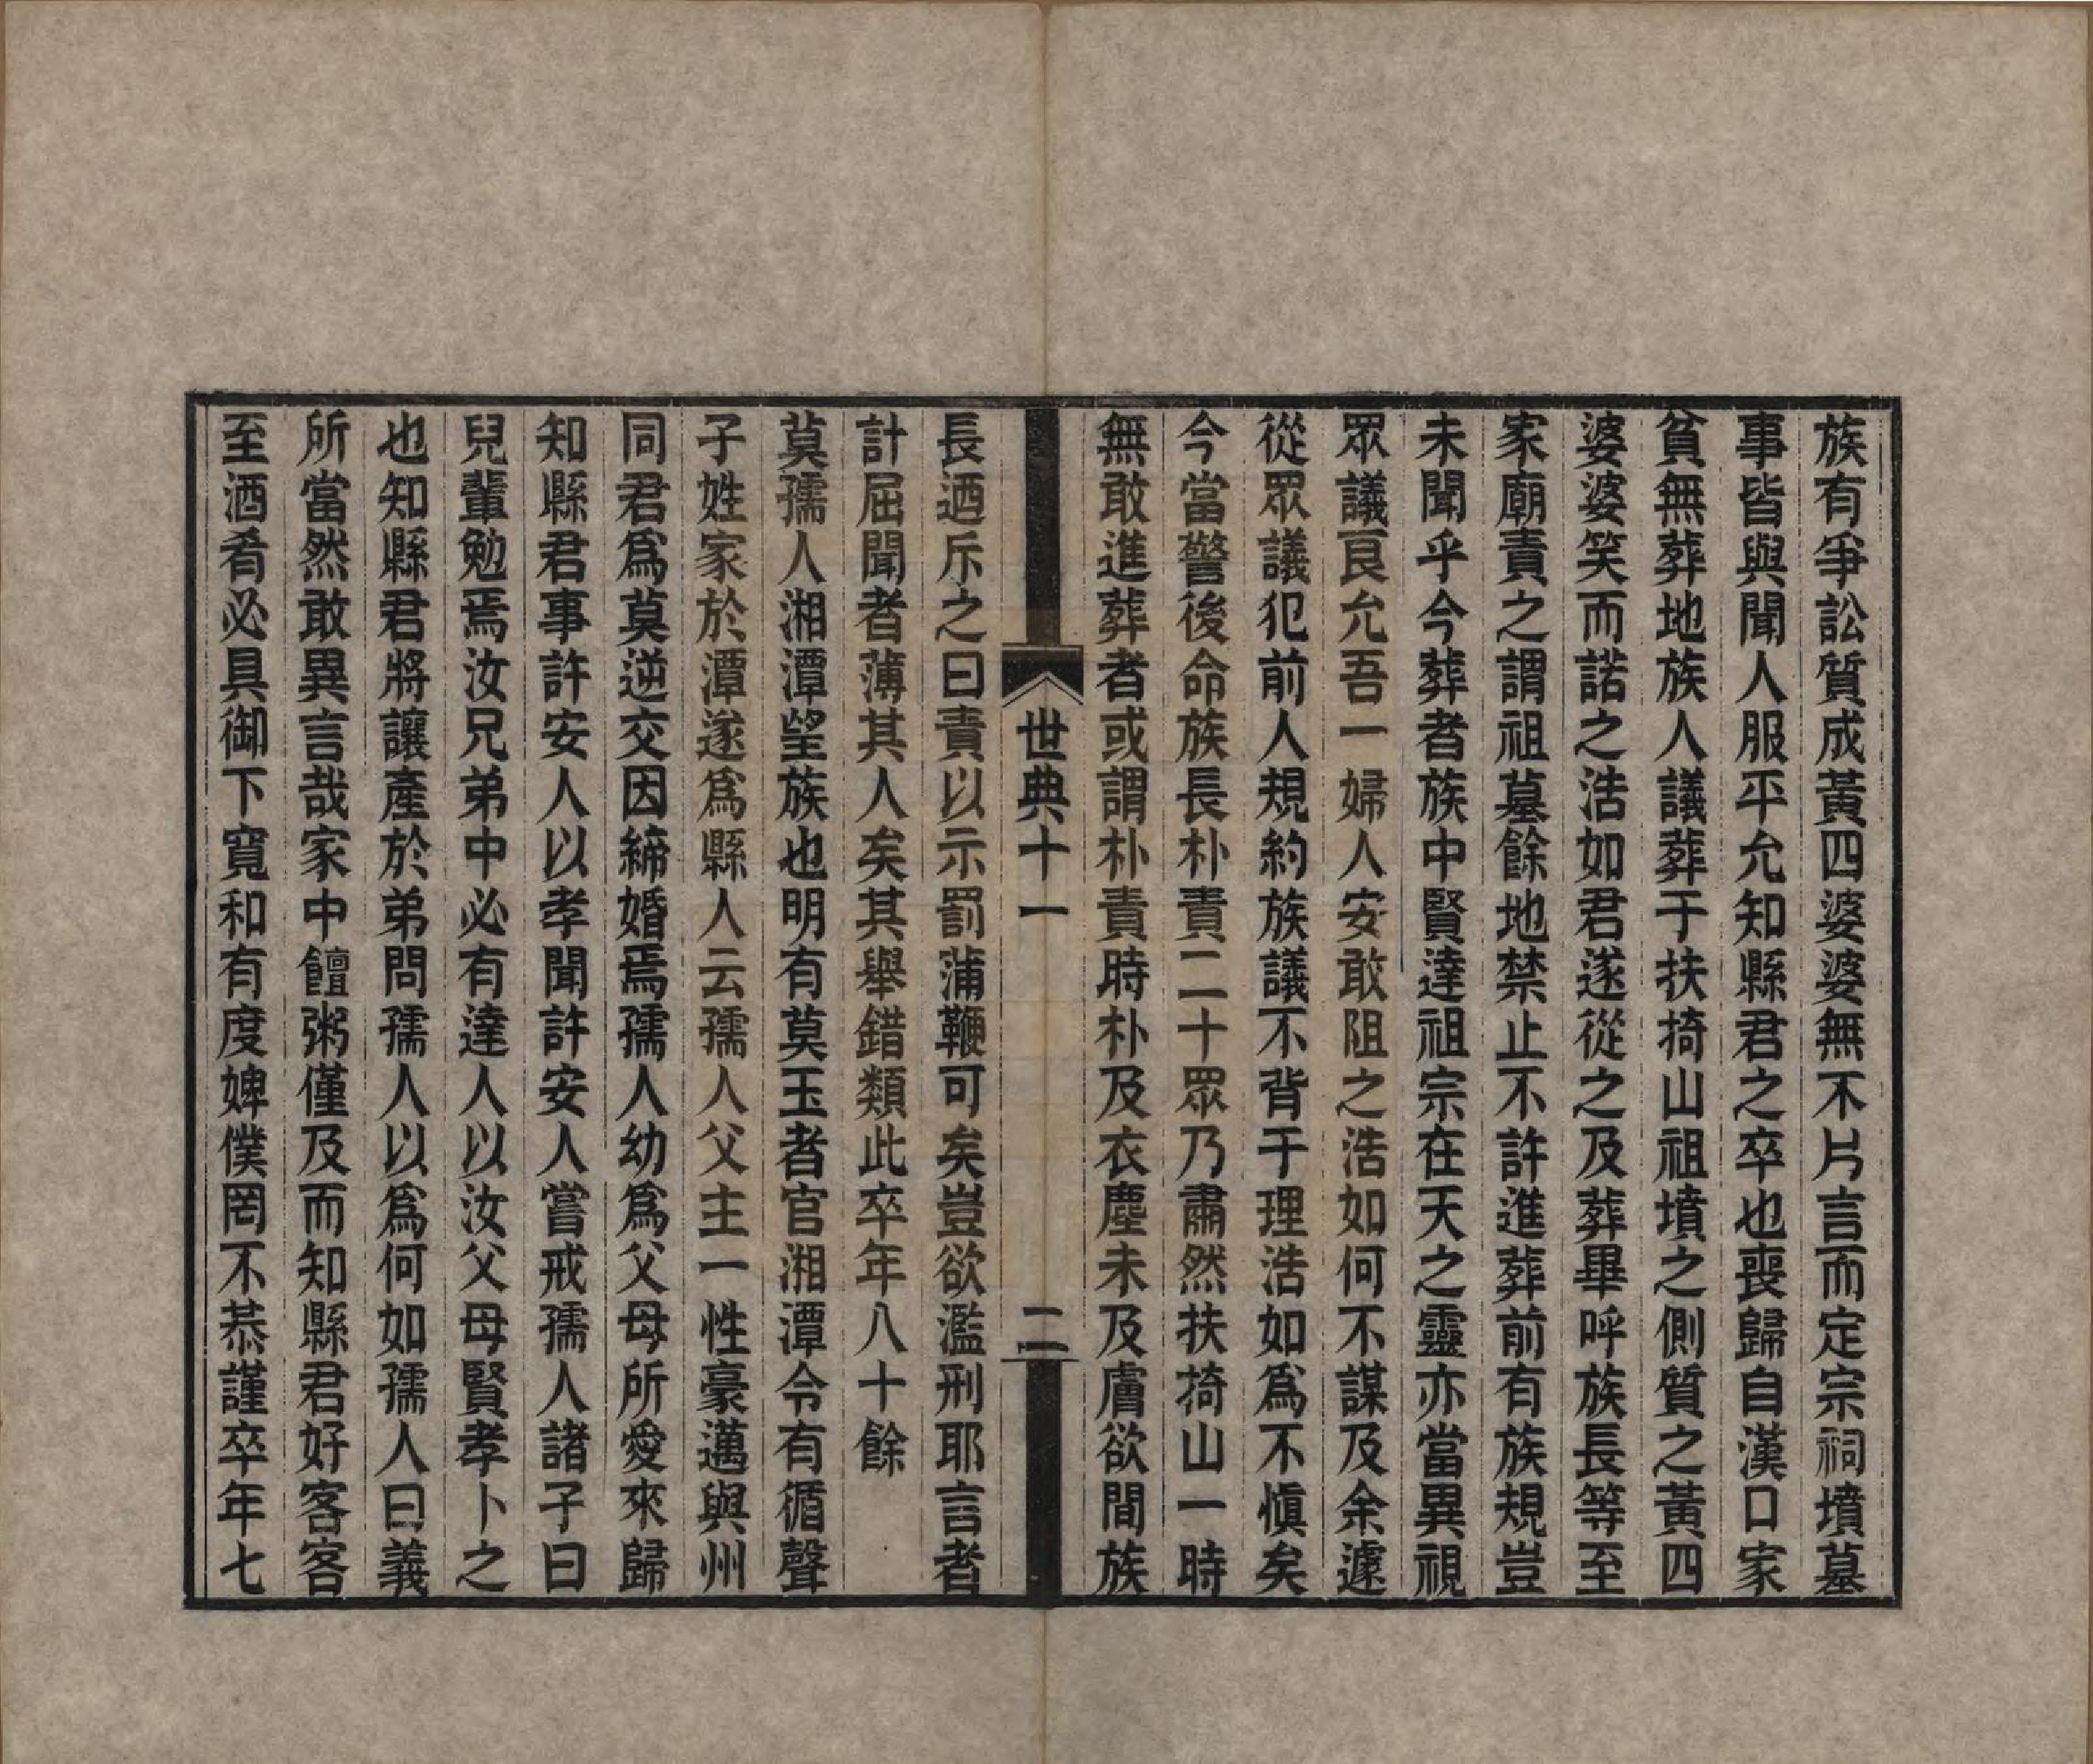 族有爭訟質成黃四婆婆無不片言而定宗祠墳墓
事皆與聞人服平允知縣君之卒也喪歸自漢口家
貧無葬地族人議葬于扶掎山祖墳之側質之黃四
婆婆笑而諾之浩如君遂從之及葬畢呼族長等至
家廟責之謂祖墓餘地禁止不許進葬前有族規豈
未聞乎今葬者族中賢達祖宗在天之靈亦當異視
眾議良允吾一婦人安敢阻之浩如何不謀及余遽
從眾議犯前人規約族議不背于理浩如為不慎矣
今當警後命族長朴責二十眾乃肅然扶掎山一時
無敢進葬者或謂朴責時朴及衣塵未及膚欲間族
世典十一
二
長迺斥之曰責以示罰蒲鞭可矣豈欲濫刑耶言者
計屈聞者薄其人矣其舉錯類此卒年八十餘
莫孺人湘潭望族也明有莫玉者官湘潭令有循聲
子姓家於潭遂為縣人云孺人父主一性豪邁與州
同君為莫逆交因締婚焉孺人幼為父母所愛來歸
知縣君事許安人以孝聞許安人嘗戒孺人諸子曰
兒輩勉焉汝兄弟中必有達人以汝父母賢孝卜之
也知縣君將讓產於弟問孺人以為何如孺人曰義
所當然敢異言哉家中饘粥僅及而知縣君好客客
至酒肴必具御下寬和有度婢僕罔不恭謹卒年七